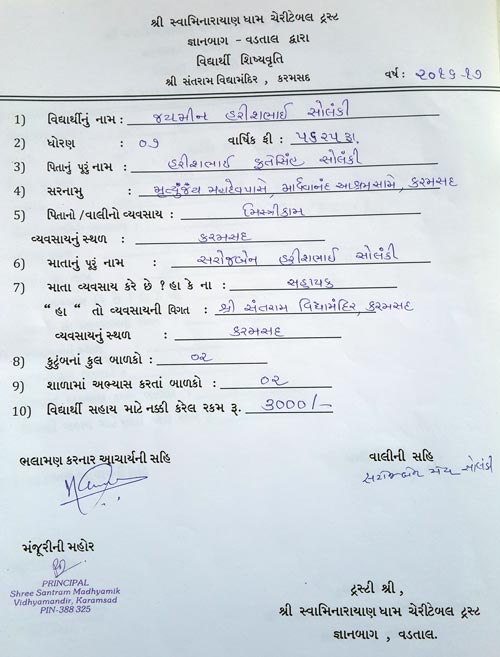 શ્રી સ્વામિનારાયણ ધામ ચેરીટેબલ ટ્રસ્ટ
જ્ઞાનબાગ - વડતાલ દ્વારા
વિદ્યાર્થી શિષ્યવૃતિ
શ્રી સંતરામ વિદ્યામંદિર , કરમસદ વર્ષ : ૨૦૧૬-૧૭
1) વિદ્યાર્થીનું નામ : જયમીન હરીશભાઈ સોલંકી
2) ધોરણ : ૦૭ વાર્ષિક ફી : ૫૬૨૫ રૂા.
3) પિતાનું પૂરૂં નામ : હરીશભાઈ ફતેસિંહ સોલંકી
4) સરનામુ : મૃત્યુંજય મહાદેવપાસે, માધવાનંદ આશ્રમસામે, કરમસદ
5) પિતાનો /વાલીનો વ્યવસાય : મિસ્ત્રીકામ
વ્યવસાયનું સ્થળ : કરમસદ
6) માતાનું પૂરૂં નામ : સરોજબેન હરીશભાઈ સોલંકી
7) માતા વ્યવસાય કરે છે ? હા કે ના : સહાયક
“ હા ” તો વ્યવસાયની વિગત : શ્રી સંતરામ વિદ્યામંદિર, કરમસદ
વ્યવસાયનું સ્થળ : કરમસદ
8) કુટુંબનાં કુલ બાળકો : ૦૨
9) શાળામાં અભ્યાસ કરતાં બાળકો : ૦૨
10) વિદ્યાર્થી સહાય માટે નક્કી કરેલ રકમ રૂ. 3000/-
ભલામણ કરનાર આચાર્યની સહિ
વાલીની સહિ
સોલંકી
મંજૂરીની મહોર
PRINCIPAL
Shree Santram Madhyamik
Vidhyamandir, Karamsad
PIN-388 325
ટ્રસ્ટી શ્રી ,
શ્રી સ્વામિનારાયણ ધામ ચેરીટેબલ ટ્રસ્ટ
જ્ઞાનબાગ , વડતાલ.